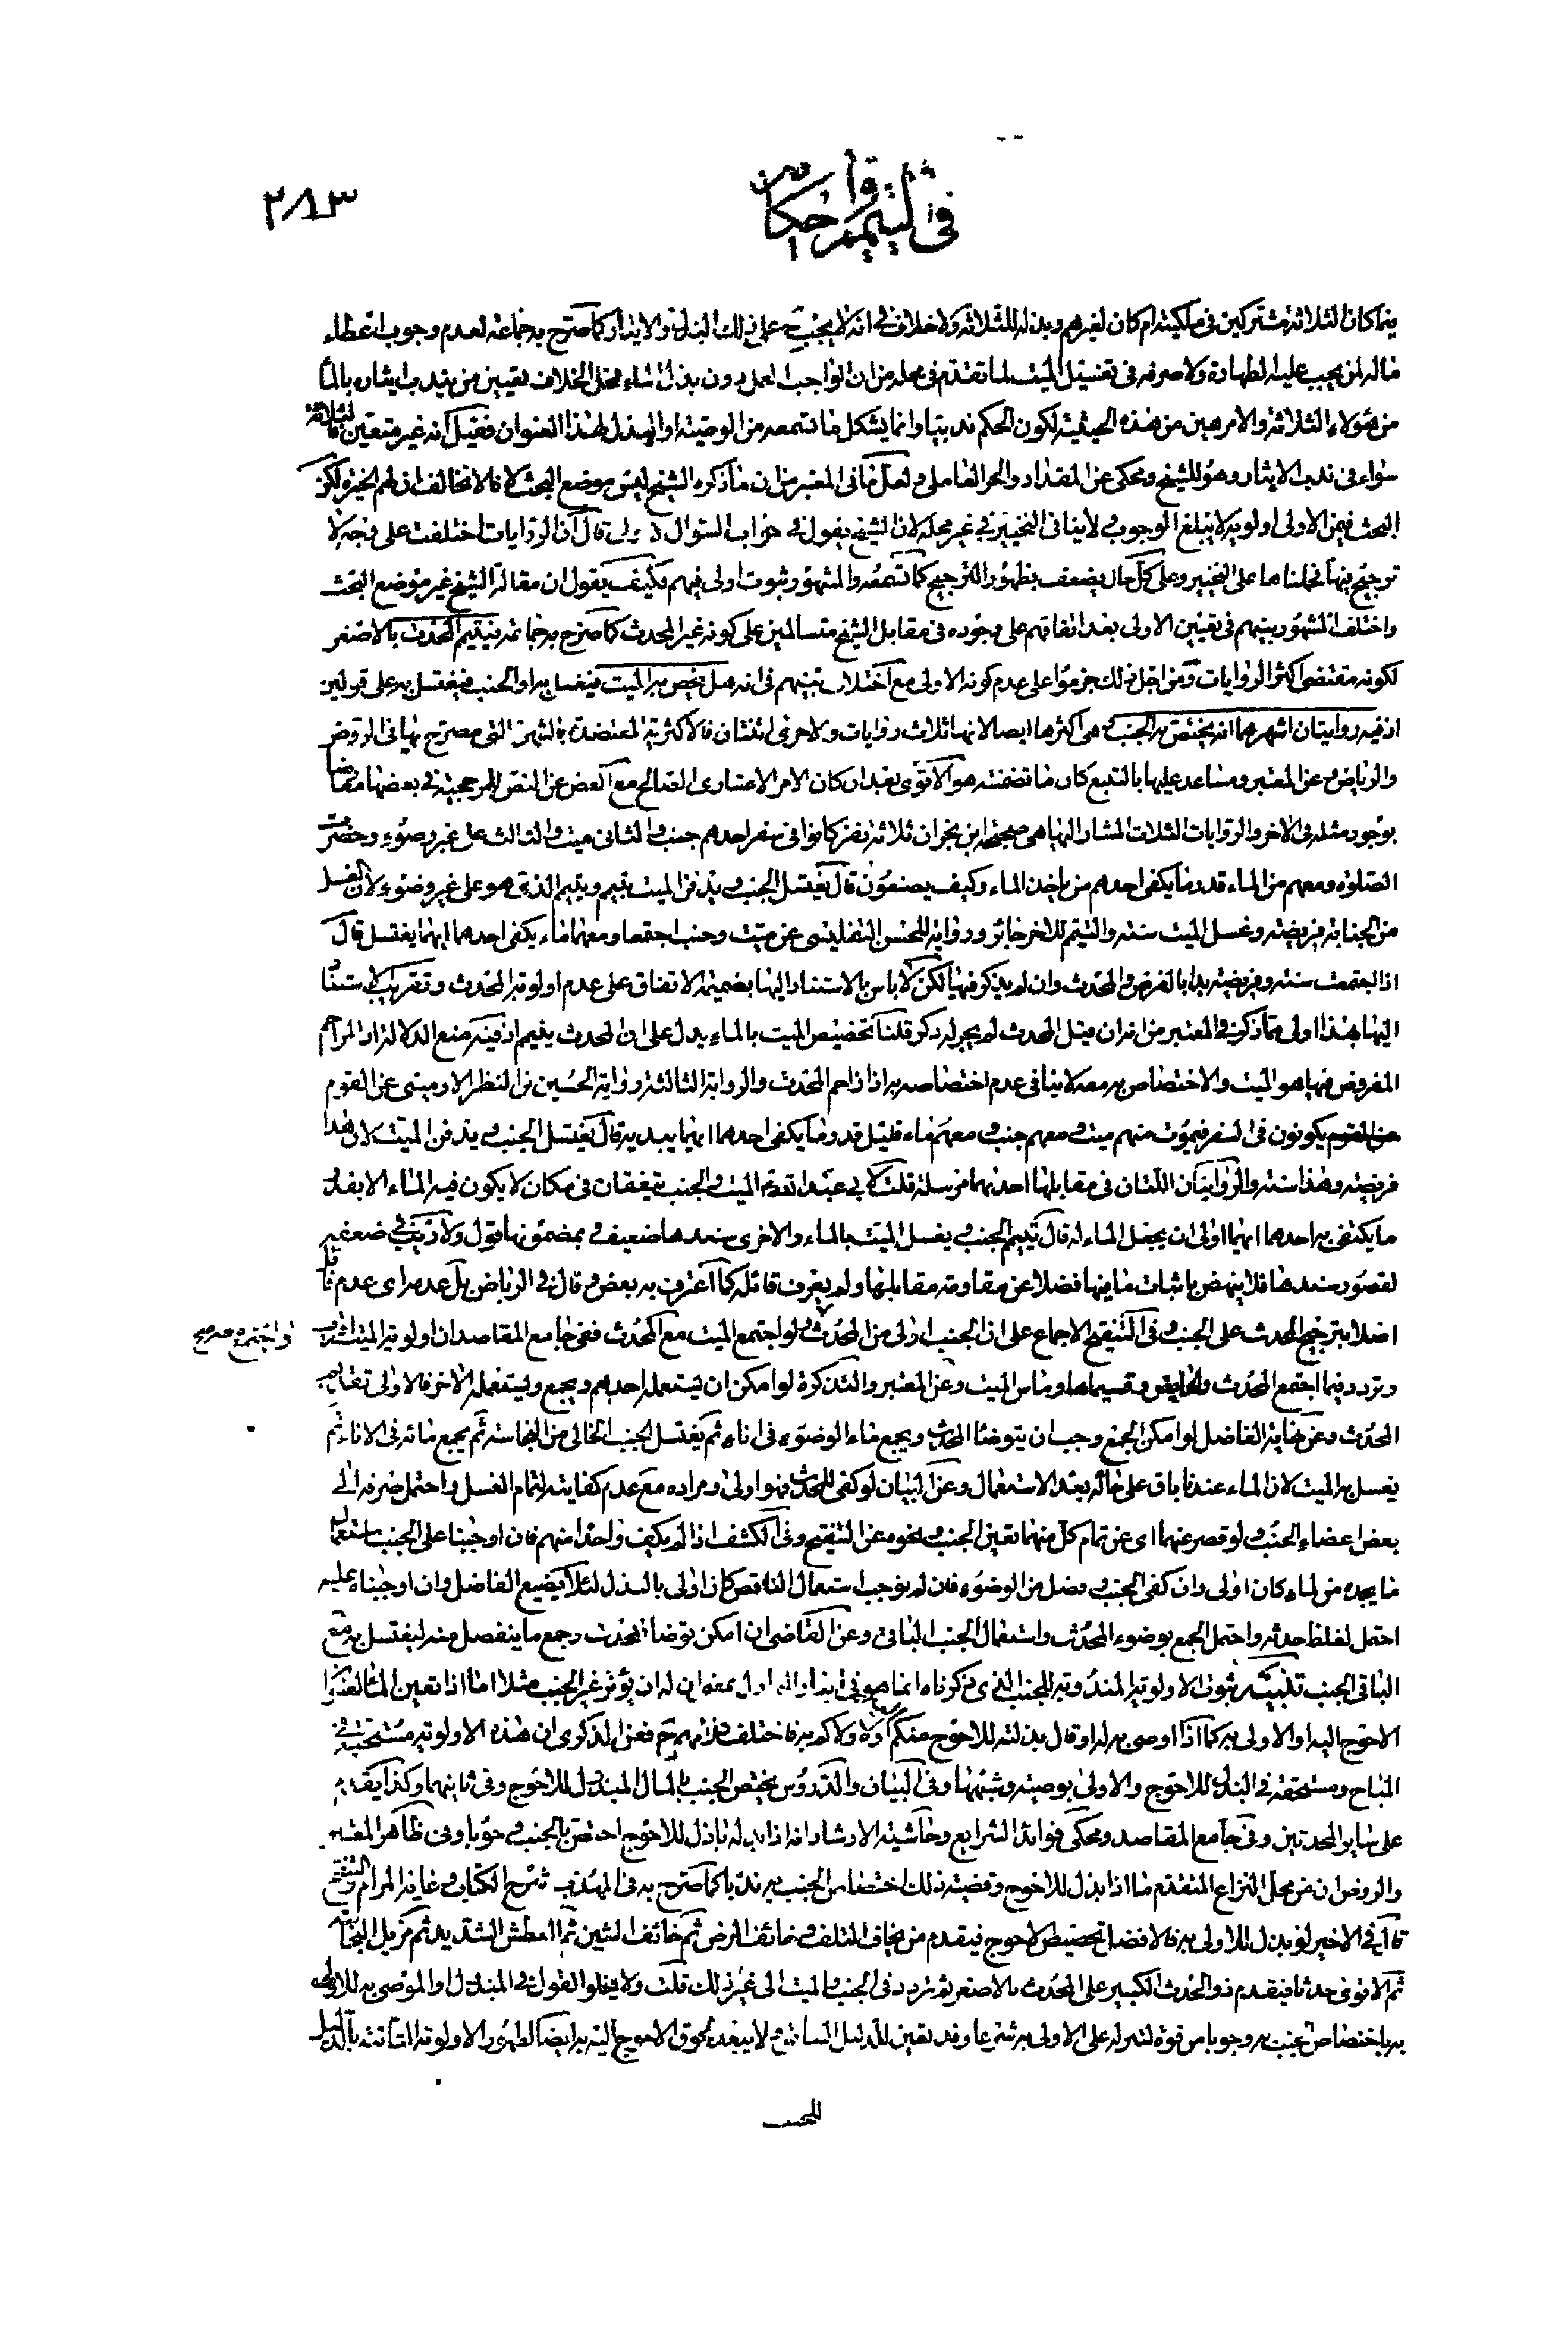 في التيمم واحكامه
٢٨٣
بينما كان الثلاثة مشتركين في ملكيته ام كان لغيرهم وبذله للثلاثة ولا خلاف في انه لا يجب على ذلك البذل والايثار كما صرح به جماعة لعدم وجوب اعطاء
ماله لمن يجب عليه الطهارة ولا صرفه في تغسيل الميت لما تقدم في محله من ان الواجب العمل دون بذل الماء ومحل الخلاف تعيين من يندب ايثاره بالماء
من هؤلاء الثلاثة والامر هين من هذه الحيثية لكون الحكم ندبيا وانما يشكل ما تسمعه من الوصية او البذل لهذا العنوان فقيل انه غير متعين فالثلاثة
سواء في ندب الايثار وهو للشيخ ومحكي عن المقداد والحر العاملي ولعل ما في المعتبر من ان ما ذكره الشيخ ليس موضع البحث لانا لا نخالف ان لهم الخيرة لكن
البحث فيمن الاولى اولوية لا يبلغ الوجوب لا ينافي التخيير في غير محله لان الشيخ يقول في جواب السؤال قال ان الروايات اختلفت على وجه لا
ترجيح فيها فحملناها على التخيير وعلى كل حال يضعف بظهور الترجيح كما تسمعه والمشهور ثبوت اولى فيهم فكيف يقول ان مقالة الشيخ غير موضع البحث
واختلف المشهور بينهم في تعيين الاولى بعد اتفاقهم على وجوده في مقابل الشيخ متسالمين على كونه غير المحدث كما صرح به جماعة فيتيمم المحدث بالاصغر
لكونه مقتضى اكثر الروايات ومن اجل ذلك جزموا على عدم كونه الاولى مع اختلاف بينهم في انه هل يختص به الميت فيغسل به او الجنب فيغتسل به على قولين
اذ فيه روايتان اشهرهما انه يختص به الجنب هي اكثرها ايضا لانها ثلاث روايات والاخرى اثنتان فالاكثرية المعتضدة بالشهرة التي مصرح بها في الروض
والرياض وعن المعتبر ومساعد عليها بالتتبع كان ما تضمنته هو الاقوى بعد ان كان الامر الاعتباري الصالح مع الغض عن النص للمرجحية في بعضها معارضا
بوجود مثله في الاخر والروايات الثلاث المشار اليها هي صحيحة ابن نجران ثلاثة نفر كانوا في سفر احدهم جنب والثاني ميت والثالث على غير وضوء وحضرت
الصلوة ومعهم من الماء قدر ما يكفي احدهم من ياخذ الماء وكيف يصنعون قال يغتسل الجنب ويدفن الميت بتيمم ويتيمم الذي هو على غير وضوء لان الغسل
من الجنابة فريضة وغسل الميت سنة والتيمم للاخر جائز ورواية للحسن التفليسي عن ميت وجنب اجتمعا ومعهما ماء يكفي احدهما ايهما يغتسل قال
اذا اجتمعت سنة وفريضة بدا بالفرض والمحدث وان لم يذكر فيها لكن لا باس بالاستناد اليها بضميمة الاتفاق على عدم اولوية المحدث وتقريب الاستناد
اليها بهذا اولى مما ذكره في المعتبر من انه ان قيل المحدث لم يجر له ذكر قلنا تخصيص الميت بالماء يدل على ان المحدث يتيمم اذ فيه منع الدلالة اذ المراحم
المفروض فيها هو الميت والاختصاص به معه لا ينافي عدم اختصاصه به اذا زاحم المحدث والرواية الثالثة رواية الحسين بن النظر الارميني عن القوم
عن القوم يكونون في السفر فيموت منهم ميت ومعهم جنب ومعهم ماء قليل قدر ما يكفي احدهما ايهما يبدء به قال يغتسل الجنب ويدفن الميت لان هذا
فريضة وهذا سنة والروايتان اللتان في مقابلها احدهما مرسلة قلت لابي عبد الله الميت والجنب يتفقان في مكان لا يكون فيه الماء الا بقدر
ما يكتفي به احدهما ايهما اولى ان يجعل الماء له قال يتيمم الجنب ويغسل الميت بالماء والاخرى سندها ضعيف وبمضمونها قول ولا ريب في ضعفه
لقصور سندها فلا ينهض باثبات ما فيها فضلا عن مقاومة مقابلها ولم يعرف قائله كما اعترف به بعض وقال في الرياض بل عدم اي عدم قائل
اصلا بترجيح المحدث على الجنب وفي التنقيح الاجماع على ان الجنب اولى من المحدث ولو اجتمع الميت مع المحدث ففي جامع المقاصد ان اولوية الميت
وتردد فيما اجتمع المحدث والحايض وقسيماها وماس الميت وعن المعتبر والتذكرة لو امكن ان يستعمله احدهم ويجمع ويستعمله الاخر فالاولى تقديم
المحدث وعن نهاية الفاضل لو امكن الجمع وجب ان يتوضا المحدث ويجمع ماء الوضوء في اناء ثم يغتسل الجنب الخالي من النجاسة ثم يجمع مائه في الاناء ثم
يغسل به الميت لان الماء عندنا باق على حاله بعد الاستعمال وعن البيان لو كفى المحدث فهو اولى ومراده مع عدم كفايته لتمام الغسل واحتمل صرفه الى
بعض اعضاء الجنب ولو قصر عنهما اي عن تمام كل منهما تعين الجنب ونحوه عن التنقيح وفي الكشف اذا لم يكف واحدا منهم فان اوجبنا على الجنب استعمال
ما يجده من الماء كان اولى وان كفى الجنب وفضل من الوضوء فان لم يوجب استعمال الناقص كان اولى بالبذل لئلا يضيع الفاضل وان اوجبناه عليه
احتمل لغلظ حدثه واحتمل الجمع بوضوء المحدث واستعمال الجنب الباقي وعن القاضي ان امكن توضا المحدث وجمع ما ينفصل منه ليغتسل به مع
الباقي الجنب تنبيه ثبوت الاولوية المندوبة للجنب الذي ذكرناه انما هو في ابتداء البذل بمعنى ان له ان يؤثر غير الجنب مثلا اما اذا تعين الماء لعنوان
الاحوج اليه او الاولى به كما اذا اوصى به له او قال بذلته للاحوج منكم فاختلف فعن الذكرى ان هذه الاولوية مستحبة في
المباح ومستحقة في البذل للاحوج والاولى بوصية وشبهها وفي البيان والدروس يختص الجنب بالمال المبذول للاحوج وفي ثانيهما وكذا يقدم
على ساير المحدثين وفي جامع المقاصد ومحكي فوائد الشرايع وحاشية الارشاد انه اذا بذله باذل للاحوج اختص بالجنب وجوبا وفي ظاهر المعتبر
والروض ان من محل النزاع المتقدم ما اذا بذل للاحوج وقضية ذلك اختصاص الجنب به ندبا كما صرح به في المهذب شرح الكتاب وغاية المرام والتنقيح
قال في الاخير لو بذل للاولى به فالافضل تخصيص الاحوج فيقدم من يخاف التلف وخائف المرض ثم خائف الشين ثم العطش الشديد ثم مزيل النجاسة
ثم الاقوى حدثا فيقدم ذو الحدث الكبير على المحدث بالاصغر ثم تردد في الجنب والميت الى غير ذلك قلت ولا يخلو القول في المبذول او الموصى به للاولى
به باختصاص الجنب به وجوبا من قوة لتنزله على الاولى به شرعا وقد تعين للدليل السابق ولا يبعد لحوق الاحوج اليه به ايضا لظهور الاولوية الثابتة بالدليل
للجنب